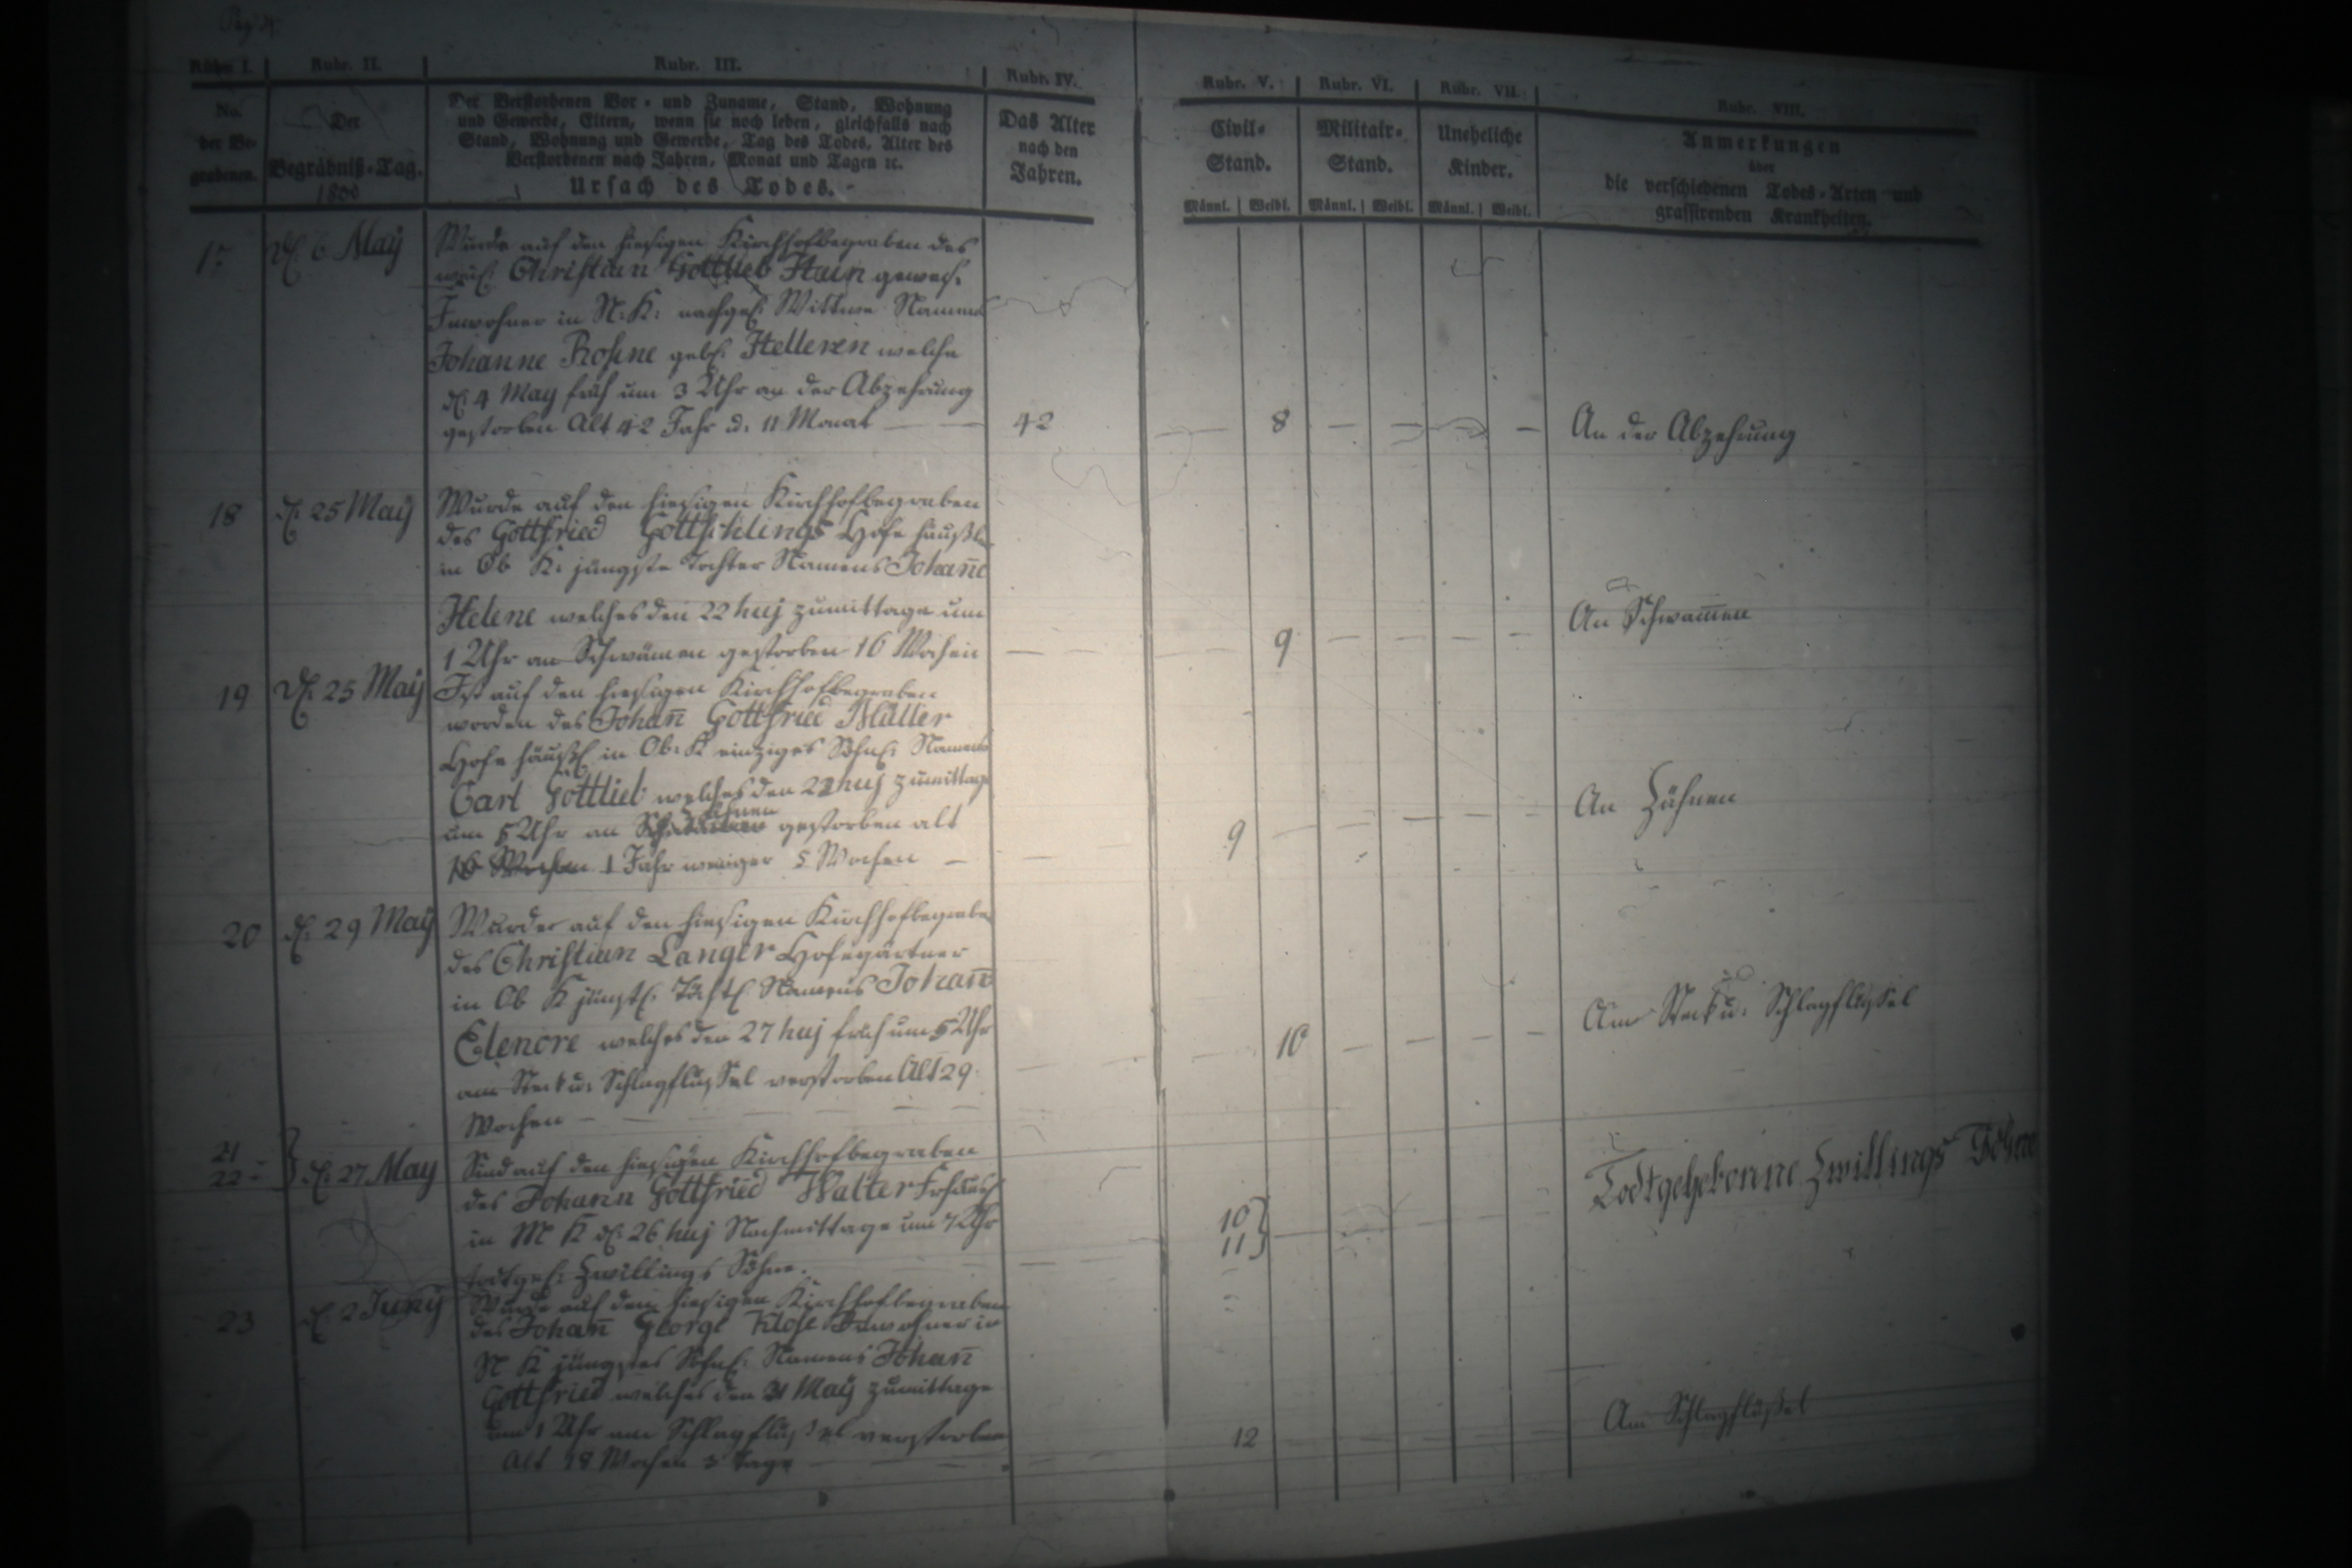 Rubr. I. Rubr. II. Rubr. III. Rubr. IV. Rubr. V. Rubr. VI. Rubr. VII. Rubr. VIII.
No. der Be-
grabenen.
Der
Begräbniß-Tag.
1800
Der Verstorbenen Vor- und Zuname, Stand, Wohnung
und Gewerbe, Eltern, wenn sie noch leben, gleichfalls nach
Stand, Wohnung und Gewerbe, Tag des Todes, Alter des
Verstorbenen nach Jahren, Monat und Tagen ꝛc.
Ursach des Todes.
Das Alter
nach den
Jahren.
Civil-
Stand.
Männl. Weibl.
Militair-
Stand.
Männl. Weibl.
Uneheliche
Kinder.
Männl. Weibl.
Anmerkungen
über
die verschiedenen Todes-Arten und
grassirenden Krankheiten.
17 d. 6 May
Wurde auf den hiesigen Kirchhof begraben des
Christian Gottlieb Hain gewes.
Inwohner in N: K: nachgel. Wittwe Namens
Johanne Rosine geb. Helleren welche
d. 4 May früh um 3 Uhr an der Abzehrung
gestorben Alt 42 Jahr u. 11 Monat
42
8
An der Abzehrung
18 d. 25 May
Wurde auf den hiesigen Kirchhof begraben
des Gottfried Gottschlings Hofehäußler
in Ob K: jüngste Tochter Namens Johañe
Helene welches den 22 huj zumittage um
1 Uhr an Schwämen gestorben 16 Wochen
9
An Schwam̄en
19 d. 25 May
Ist auf den hiesigen Kirchhof begraben
worden des Johañ Gottfried Müller
Hofehäußl in Ob: K einziges Söhnl: Namens
Carl Gottlieb welches den 22 huj zumittage
um 5 Uhr an Zähnen gestorben alt
16 Wochen 1 Jahr weniger 5 Wochen
9
An Zähnen
20 d. 29 May
Wurde auf den hiesigen Kirchhof begraben
des Christian Langer Hofegärtner
in Ob K jüngst. Töchtl. Namens Johañ
Elenore welches den 27 huj früh um 5 Uhr
am Steck u: Schlagflussel verstorben Alt 29
Wochen
10
Am Steck u: Schlagflussel
21
22 d. 27 May
Sind auf den hiesigen Kirchhof begraben
des Johann Gottfried Walter
in M K d. 26 huj Nachmittage um 7 Uhr
todtgeb: Zwillings Söhne.
10
11
Todtgebohrne Zwillings Söhne
23 d. 2 Juny
Wurde auf den hiesigen Kirchhof begraben
des Johañ George Klose Inwohner in
N K jüngstes Söhnl: Namens Johañ
Gottfried welches den 31 May zumittage
um 1 Uhr am Schlagflusses verstorben
Alt 18 Wochen 3 Tage
12
Am Schlagflussel